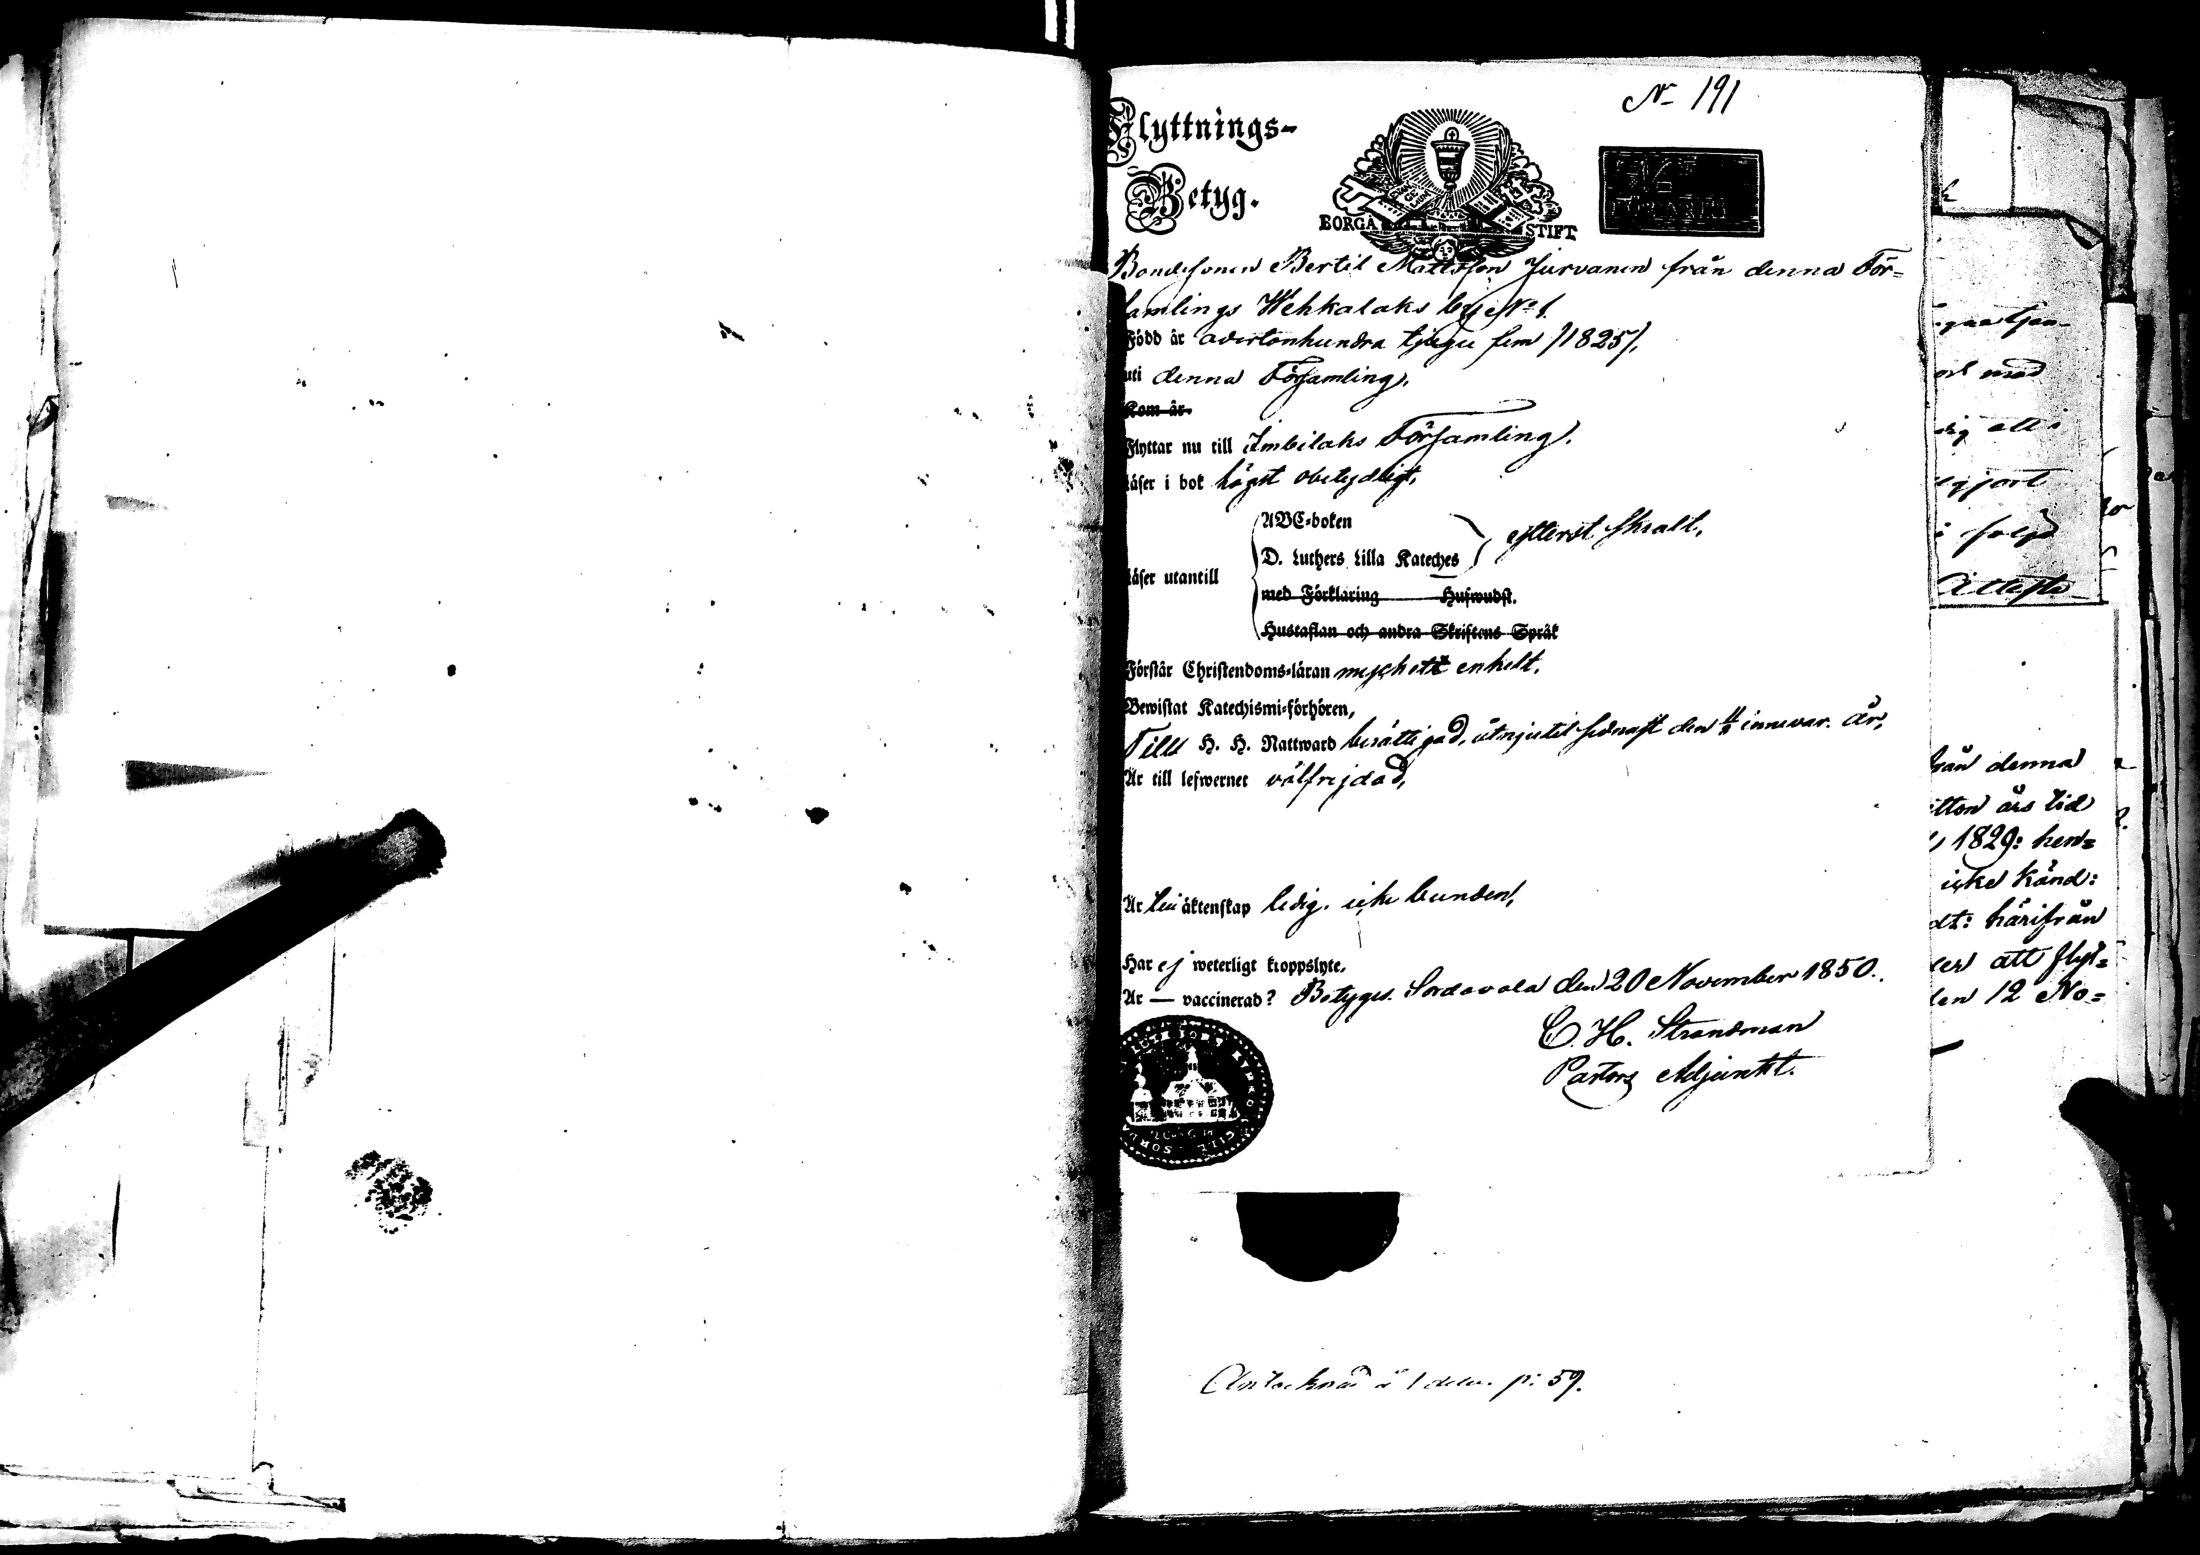 No 191
Flyttnings-
Betyg.
BORGÅ STIFT
Bondesonen Bertil Mattsson Jurvanen från denna För=
samlings Wehkalaks by No 1.
Född år adertonhundra tjugu fem /1825/,
uti denna Församling,
Kom år.
Flyttar nu till Imbilaks Församling.
Läser i bok högst obetydligt,
ABC-boken
D. Luthers Lilla Kateches
efteråt skralt.
Läser utantill
med Förklaring Huswudst.
Hustaflan och andra Skriftens Språk
Förstår Christendoms-läran mycket enkelt.
Bewistat Katechismi-förhören,
Till H. H. Nattward berättigad, åtnjutit sednast den innevar. år,
Är till lefwernet välfrejdad,
Är till äktenskap ledig, icke bunden,
Har ej weterligt kroppslyte.
Är — vaccinerad? Betygas. Sordavala den 20 November 1850.
C. H. Strandman
Pastors Adjunkt.
Antecknad i 1 delen p: 59.
med
dig att
följd
Attesta
från denna
års tid
1829: hen=
icke känd:
härifrån
att flyt=
den 12 No=